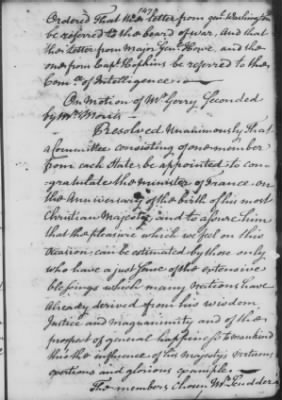 1478
Ordered That the letter from genl Washington
be referred to the board of war, and that
the letter from Major Genl Howe, and the
one from Capt Hopkins be referred to the
Come of Intelligence.
On Motion of Mr Gerry Seconded
by Mr Morris
Resolved Unanimously That
a Committee consisting of one member
from each State be appointed to con-
gratulate the minister of France on
the Anniversary of the birth of his most
Christian Majesty, and to assure him
that the pleasure which we feel on this
Occasion can be estimated by those only
who have a just sense of the extensive
blessings which many Nations have
Already derived from his wisdom
Justice and magnanimity and of the
prospect of general happiness to mankind
thro the influence of his Majestys virtuous
exertions and glorious example.
The members chosen Mr Scudder